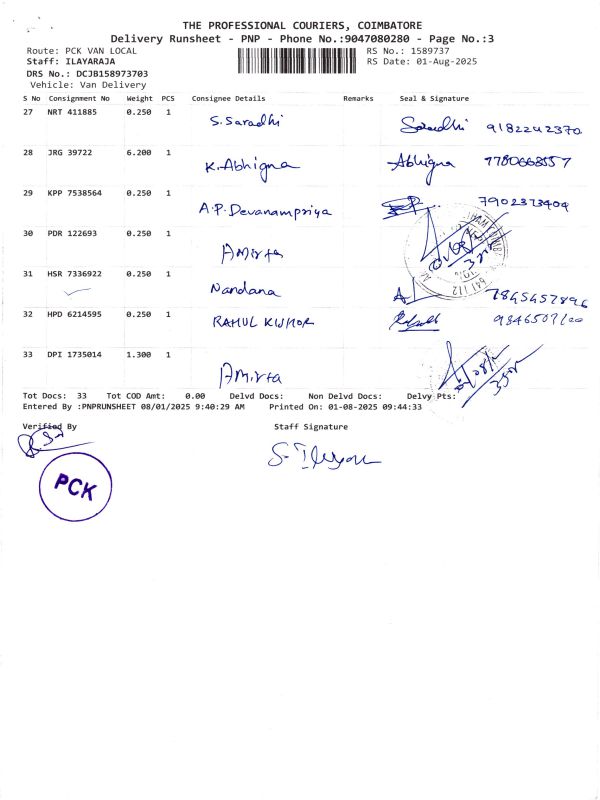 THE PROFESSIONAL COURIERS, COIMBATORE
Delivery Runsheet - PNP - Phone No.:9047080280 - Page No.:3
Route: PCK VAN LOCAL RS No.: 1589737
Staff: ILAYARAJA RS Date: 01-Aug-2025
DRS No.: DCJB158973703
Vehicle: Van Delivery
S No Consignment No Weight PCS Consignee Details Remarks Seal & Signature
27 NRT 411885 0.250 1 S. Saradhi Saradhi 9182242370
28 JRG 39722 6.200 1 K. Abhigna Abhigna 7780668557
29 KPP 7538564 0.250 1 A.P. Devanampriya 7902373404
30 PDR 122693 0.250 1 Amirta
31 HSR 7336922 0.250 1 Nandana 7845457896
32 HPD 6214595 0.250 1 RAHUL KISHOR
33 DPI 1735014 1.300 1 Amirta
Tot Docs: 33 Tot COD Amt: 0.00 Delvd Docs: Non Delvd Docs: Delvy Pts:
Entered By :PNPRUNSHEET 08/01/2025 9:40:29 AM Printed On: 01-08-2025 09:44:33
Verified By Staff Signature
PCK